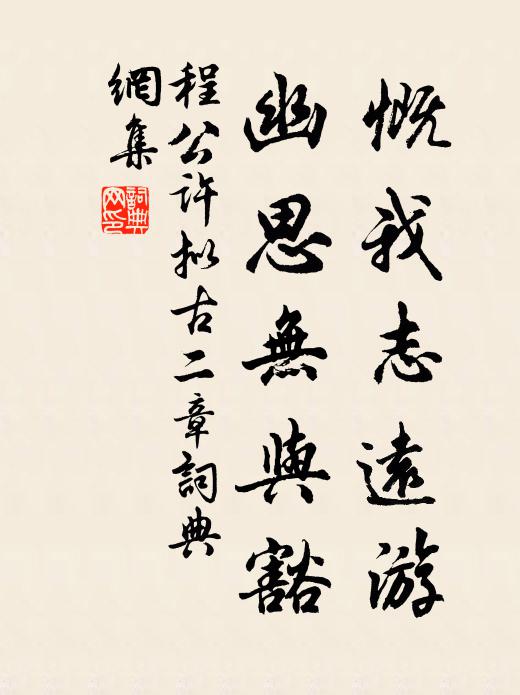 慨我志遠游
幽思無與豁
程公许拟古二章詞典
網集
詞典網印